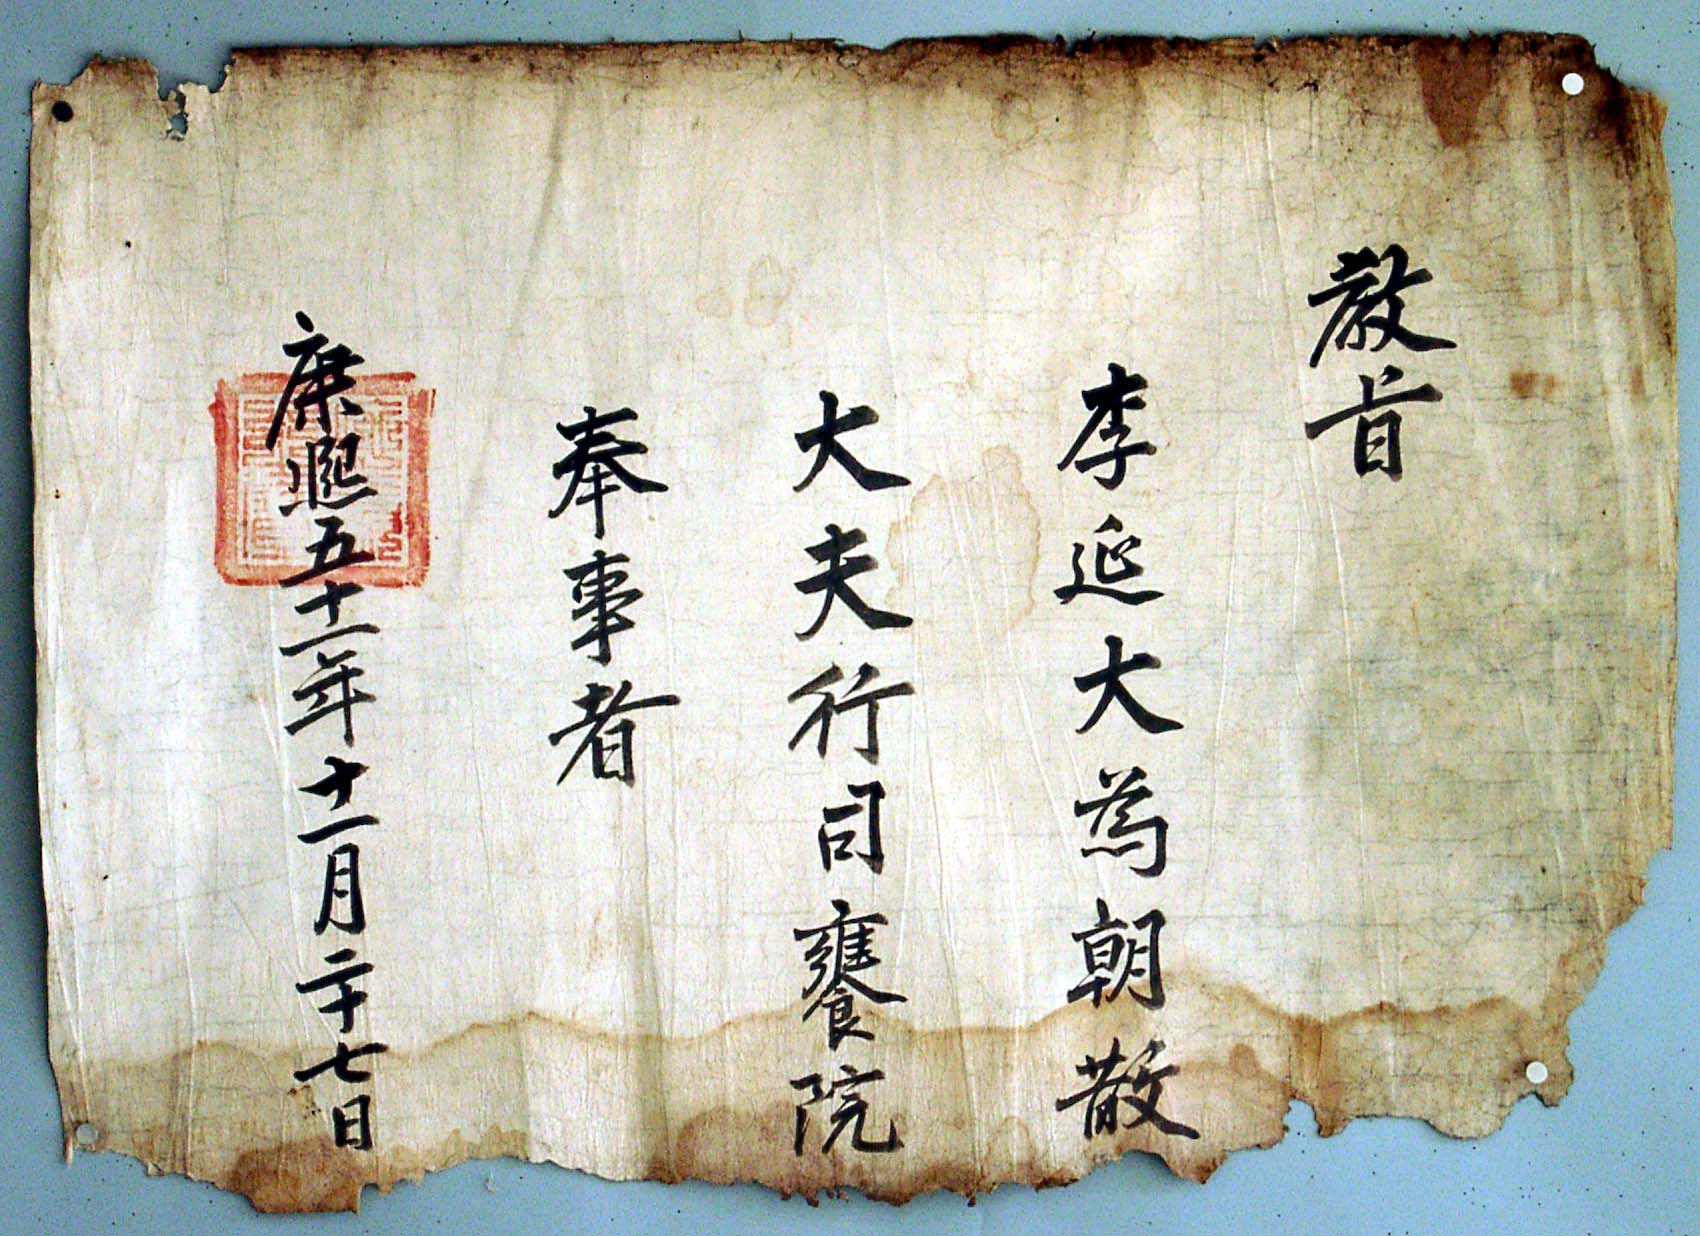 敎旨
李延大為朝散
大夫行司饔院
奉事者
康熙五十一年十一月二十七日